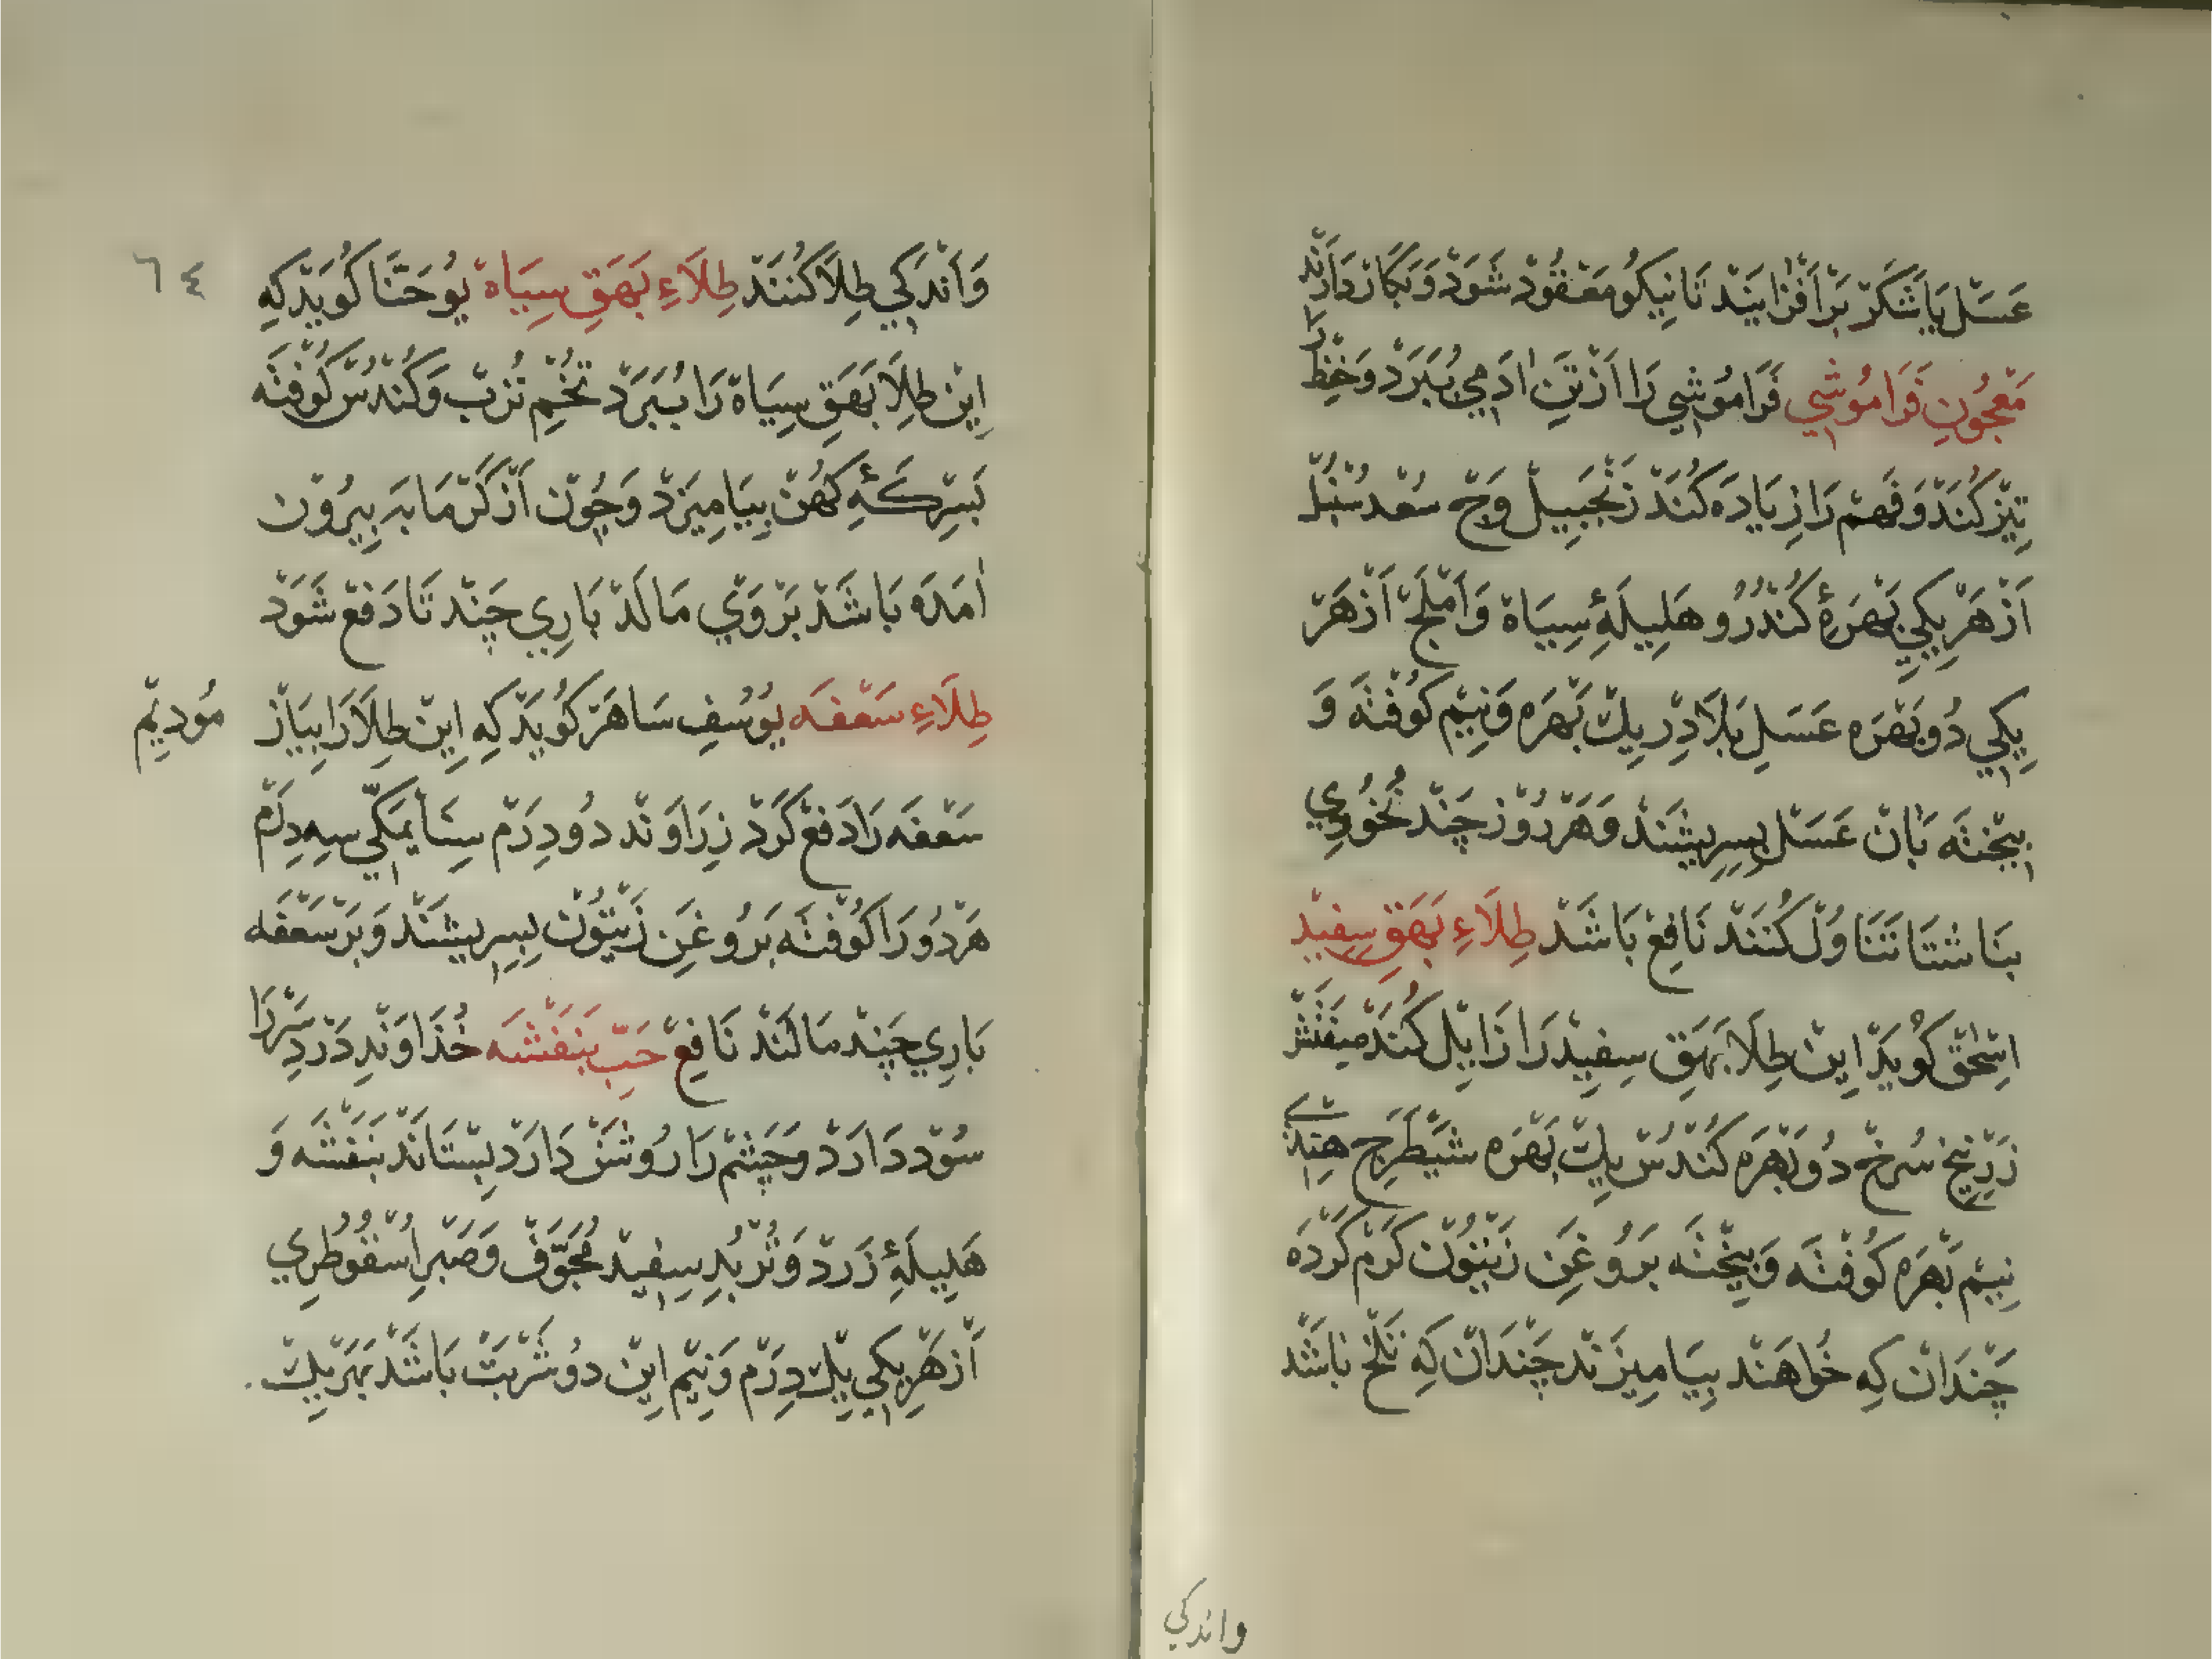 عَسَل يَا شَكَرْ بَرْ اَفْزَايَنْدْ تَا نِيكُو مَعْقُودْ شَوَدْ وَ بَكَارْ دَارَنْدْ
مَعْجُونِ فَرَامُوشِي فَرَامُوشِي رَا اَزْ تَنِ اٰدَمِي بُبَرَدْ وَ حِفْظْ رَا
تِيزْ كُنَدْ وَ فَهمْ رَا زِيَادَه كُنَدْ زَنْجَبِيلْ وَجْ سُعْدْ سُنْبُلْ
اَزْ هَرْ يِكِي بَهْرَهٔ كُنْدُرُو هَلِيلَهٔ سِيَاهْ وَ اَمْلَجْ اَزْ هَرْ
يِكِي دُو بَهْرَه عَسَلِ بَلَادِرْ يِكْ بَهْرَه وَ نِيمْ كُوْفْتَه وَ
بِيخْتَه بَانْ عَسَلْ بِسِرِيشَنْدْ وَ هَرْ رُوْزْ چَنْدْ نُخُوْدِي
بنَاشتَا تَنَاوُلْ كُنَنْدْ نَافِعْ بَاشَدْ طِلَاءِ بَهَقِ سِفِيدْ
اِسْحٰقْ كُويَدْ اِينْ طِلَا بَهَقِ سِفِيدْ رَا زَايِلْ كُنَدْ
زَرْنِيخِ سُرخْ دُو بَهْرَه كُنْدُسْ يِكْ بَهْرَه شَيْطَرَجِ هِنْدِي
نِيمْ بَهْرَه كُوفْتَه وَ بِيخْتَه بَرُوغَنِ زَيْتُوْن كَرْمْ كَرْدَه
چَنْدَانْ كِه خُواهَنْد بِيَامِيزَنْد چَنْدَانْ كِه تَلْخْ بَاشَدْ
وانْدكي
وَ اَنْدَكِي طِلَا كُنَنْدْ طِلَاءِ بَهَقِ سِيَاهْ يُوحَنَّا كُويَدْ كِه
اِينْ طِلَا بَهَقِ سِيَاهْ رَا بُبَرَدْ تُخْمِ تُرْبْ وَ كُنْدُسْ كُوفْتَه
بَسِرْكَهٔ كُهَنْ بِيَامِيزَدْ وَ چُونْ اَزْ كَرْمَابَه بِيرُوْن
اٰمَدَه بَاشَدْ بَرْ وَيْ مَالَدْ بَارِي چَنْدْ تَا دَفعْ شَوَدْ
طِلَاءِ سَعْفَه يُوْسُفِ سَاهَرْ كُويَدْ كِه اِينْ طِلَا رَا بيَازْ مُودِيمْ
سَعفَه رَا دَفعْ كَرْدْ زِرَاوَنْد دُو دِرَمْ مَكِّي سِه دِرَمْ
هَرْ دُو رَا كُوفْتَه بَرُوغَنِ زَيْتُوْن بِسِرِيشَنْدْ وَ بَرْ سَعْفَه
بَارِي چَنْدْ مَالَنْدْ نَافِعْ حَبِّ بَنَفْشَه خُذَاوَنْدِ دَرْدِ سَرْ رَا
سُوْد دَارَدْ وَ چَشْمْ رَا رُوشَنْ دَارَدْ بِسْتَانَدْ بَنَفْشَه وَ
هَلِيلَهٔ زَرْدْ وَ تُرْبُدِ سِفِيدْ مُجَوَّفْ وَ صَبْرِ اُسْقُوطْرِي
اَزْ هَرْ يِكِي يِكْ دِرَمْ وَ نِيمْ اِينْ دُو شَرْبَتْ بَاشَدْ بَهَرْ يِكْ
٦٤